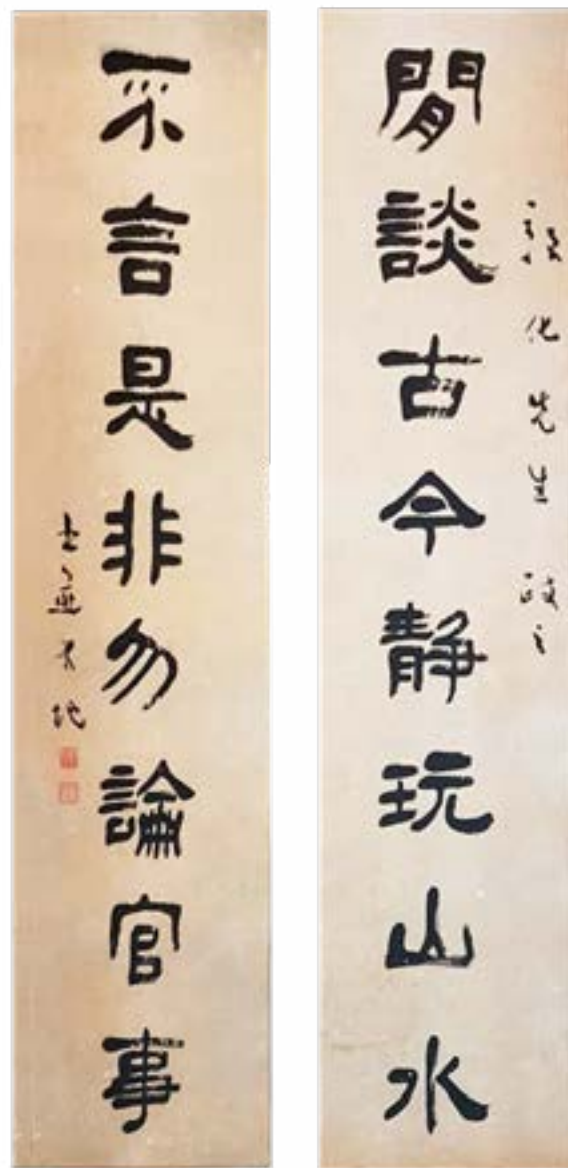 閒談古今静玩山水
化先生 政之
不言是非勿論官事